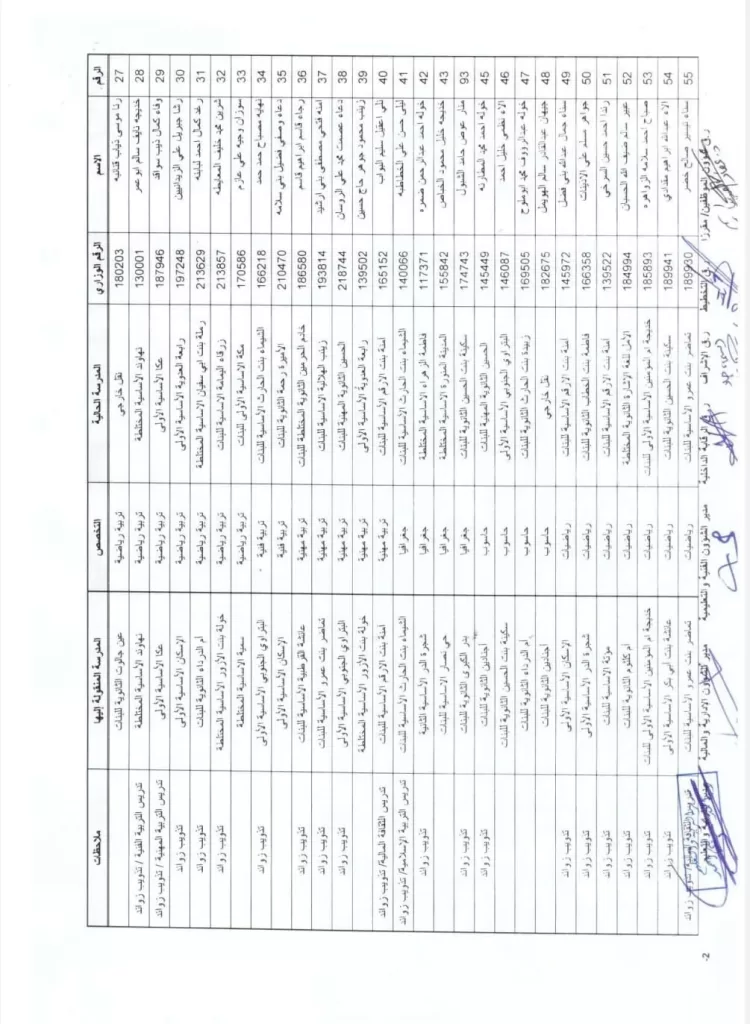 الرقم الاسم الرقم الوزاري المدرسة الحالية التخصص المدرسة المنقولة إليها ملاحظات
27 رنا موسى ذياب 180203 نقل خارجي تربية رياضية عين جالوت الثانوية للبنات
28 خديجه نايف سالم ابو عمر 130001 نهاوند الأساسية المختلطة تربية رياضية نهاوند الأساسية المختلطة تدريس التربية الفنية / تذويب زوائد
29 وفاء كمال ذيب سوافد 187946 عكا الأساسية الأولى تربية رياضية عكا الأساسية الأولى تدريس التربية المهنية / تذويب زوائد
30 رشا جبريل علي الزيدانيين 197248 رابعة العدوية الأساسية الأولى تربية رياضية الإسكان الأساسية الأولى تذويب زوائد
31 رغد كمال احمد لبابنه 213629 رملة بنت ابي سفيان الاساسية المختلطة تربية رياضية أم الدرداء الثانوية للبنات تذويب زوائد
32 شرين محمد خليف المعايطه 213857 زرقاء اليمامة الاساسية للبنات تربية رياضية خولة بنت الأزور الأساسية المختلطة تذويب زوائد
33 سوزان وجيه علي عازم 170586 مكة الاساسية الأولى للبنات تربية رياضية سمية الاساسية المختلطة
34 نهايه مصباح حمد حمد 166218 الشيماء بنت الحارث الاساسية للبنات تربية فنية البتراوي الجنوبي الأساسية الأولى تذويب زوائد
35 دعاء وصفي فضيل بني سلامه 210470 الأميرة رحمة الثانوية للبنات تربية فنية الإسكان الأساسية الأولى تذويب زوائد
36 رجاء قاسم ابراهيم قاسم 186580 خادم الحرمين الثانوية المختلطة للبنات تربية مهنية عائشة القرطبية الأساسية للبنات تذويب زوائد
37 امنه فتحي مصطفى بني ارشيد 193814 زينب الهلالية الاساسية للبنات تربية مهنية تماضر بنت عمرو الاساسية للبنات تذويب زوائد
38 دعاء عصمت محمد علي الروسان 218744 الحسين الثانوية المهنية للبنات تربية مهنية البتراوي الجنوبي الأساسية الأولى تذويب زوائد
39 زينب محمود جوهر حاج حسين 139502 رابعة العدوية الأساسية الأولى تربية مهنية خولة بنت الأزور الأساسية المختلطة تذويب زوائد
40 للي اعقيل سليم البواب 165152 امنة بنت الارقم الأساسية للبنات تربية مهنية امنة بنت الارقم الأساسية للبنات تدريس الثقافة المالية/ تذويب زوائد
41 ليلى حسن علي الخطاطبه 140066 الشيماء بنت الحارث الاساسية للبنات جغرافيا الشيماء بنت الحارث الاساسية للبنات تدريس التربية الإسلامية/ تذويب زوائد
42 خوله احمد عبدالرحمن ضمره 117371 فاطمة الزهراء الاساسية المختلطة جغرافيا شجرة الدر الأساسية الثانية تذويب زوائد
43 خديجه خليل محمود الخاص 155842 المدينة المنورة الاساسية المختلطة جغرافيا حي نصار الأساسية للبنات تذويب زوائد
93 منار عوض حامد الشبول 174743 سكينة بنت الحسين الثانوية للبنات جغرافيا بدر الكبرى الثانوية للبنات تذويب زوائد
45 خوله احمد محمد المطارنه 145449 الحسين الثانوية المهنية للبنات حاسوب أجنادين الثانوية للبنات تذويب زوائد
46 الاء لطفي خليل احمد 146087 البتراوي الجنوبي الأساسية الأولى حاسوب سكينة بنت الحسين الثانوية للبنات
47 خوله عبدالرؤوف محمد ابوملوح 169505 زبيدة بنت الحارث الثانوية للبنات حاسوب أم الدرداء الثانوية للبنات
48 جيهان عبدالقادر سالم الهويمل 182675 نقل خارجي حاسوب أجنادين الثانوية للبنات
49 سناء جمال عبدالله بني فضل 145972 امنة بنت الارقم الأساسية للبنات رياضيات الاسكان الاساسية الأولى تذويب زوائد
50 جواهر مسلم علي الاذينات 166358 فاطمة بنت الخطاب الثانوية للبنات رياضيات شجرة الدر الأساسية الأولى تذويب زوائد
51 رندا احمد حسين السرخي 139522 امنة بنت الارقم الاساسية للبنات رياضيات مؤتة الاساسية للبنات تذويب زوائد
52 عبير سالم ضيف الله الحسبان 184994 الأمل للغة الإشارة الثانوية المختلطة رياضيات أم كلثوم الثانوية للبنات تذويب زوائد
53 صباح احمد سلامه الزواهره 185893 خديجة ام المؤمنين الأساسية الأولى للبنات رياضيات خديجة ام المؤمنين الأساسية الأولى للبنات تذويب زوائد
54 الاء عبدالله ابراهيم مقدادي 189941 سكينة بنت الحسين الثانوية للبنات رياضيات عائشة بنت أبي بكر الأساسية الأولى تذويب زوائد
55 سناء تيسير صالح خضر 189930 تماضر بنت عمرو الأساسية للبنات رياضيات تماضر بنت عمرو الأساسية للبنات
ر.ق شؤون الموظفين/ مقررا ر.ق التخطيط ر.ق الاشراف ر.ق الرقابة الداخلية مدير الشؤون الفنية والتعليمية مدير الشؤون الادارية والمالية
-2